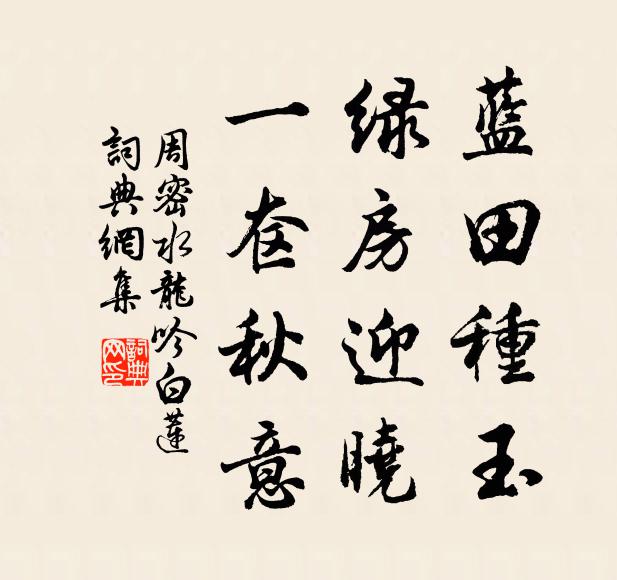 藍田種玉
绿房迎曉
一奁秋意
周密水龍吟白蓮
詞典網集
詞典網印